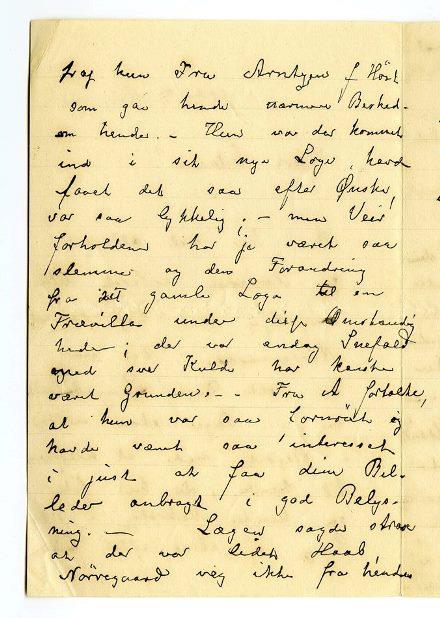 traf hun Fru Arntzen f Höst
som gav hende nærmere Besked
om hende. - Hun var der kommet
ind i sit nye Logi, havde
faaet det saa efter Ønske,
var saa lykkelig; - men Veir
forholdene har jo været saa
slemme og den Forandring
fra det gamle Logi til en
Trævilla under disse Omstændig
heder; der var endog Snefald
med svær Kulde har kanske
været Grunden. - Fru A fortalte,
at hun var saa
havde været saa interesset
i just at faa dine Bil-
leder anbragt i god Belys-
ning. - Lægen sagde strax
at der var lidet Haab,
Nörregaard veg ikke fra hendes